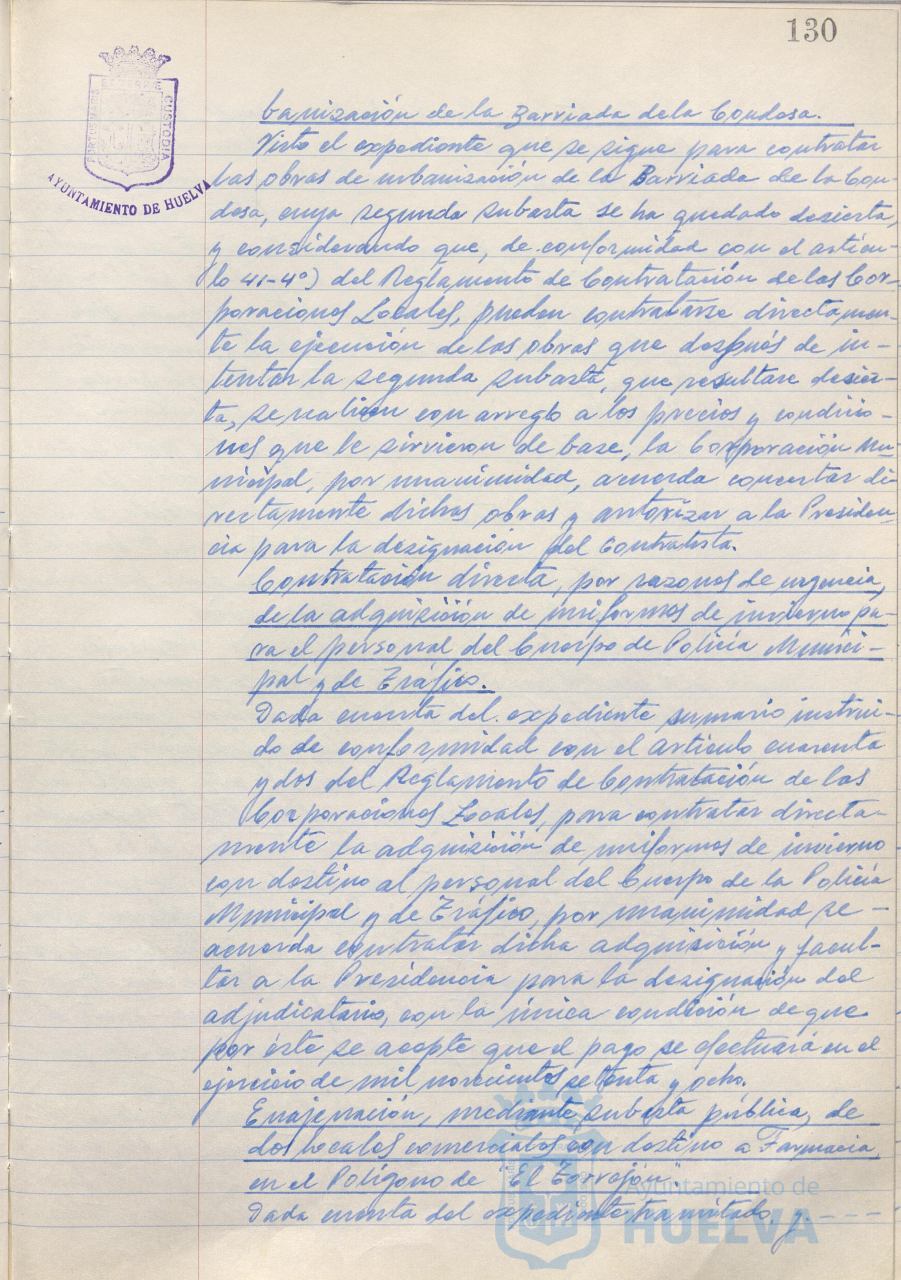 130
PORTUS MARIS ET TERRAE CUSTODIA
AYUNTAMIENTO DE HUELVA
banización de la Barriada de la Condesa.
Visto el expediente que se sigue para contratar
las obras de urbanización de la Barriada de la Con-
desa, cuya segunda subasta se ha quedado desierta,
y considerando que, de conformidad con el artícu-
lo 41-4º) del Reglamento de Contratación de las Cor-
poraciones Locales, pueden contratarse directamen-
te la ejecución de las obras que después de in-
tentar la segunda subasta, que resultare desier-
ta, se realicen con arreglo a los precios y condicio-
nes que le sirvieron de base, la Corporación Mu-
nicipal, por unanimidad, acuerda concertar di-
rectamente dichas obras y autorizar a la Presiden-
cia para la designación del Contratista.
Contratación directa, por razones de urgencia,
de la adquisición de uniformes de invierno pa-
ra el personal del Cuerpo de Policía Munici-
pal y de Tráfico.
Dada cuenta del expediente sumario instrui-
do de conformidad con el artículo cuarenta
y dos del Reglamento de Contratación de las
Corporaciones Locales, para contratar directa-
mente la adquisición de uniformes de invierno
con destino al personal del Cuerpo de la Policía
Municipal y de Tráfico, por unanimidad se
acuerda contratar dicha adquisición y facul-
tar a la Presidencia para la designación del
adjudicatario, con la única condición de que
por éste se acepte que el pago se efectuará en el
ejercicio de mil novecientos setenta y ocho.
Enajenación, mediante subasta pública, de
dos locales comerciales con destino a Farmacia
en el Polígono de "El Torrejón".
Dada cuenta del expediente tramitado,
Ayuntamiento de
HUELVA